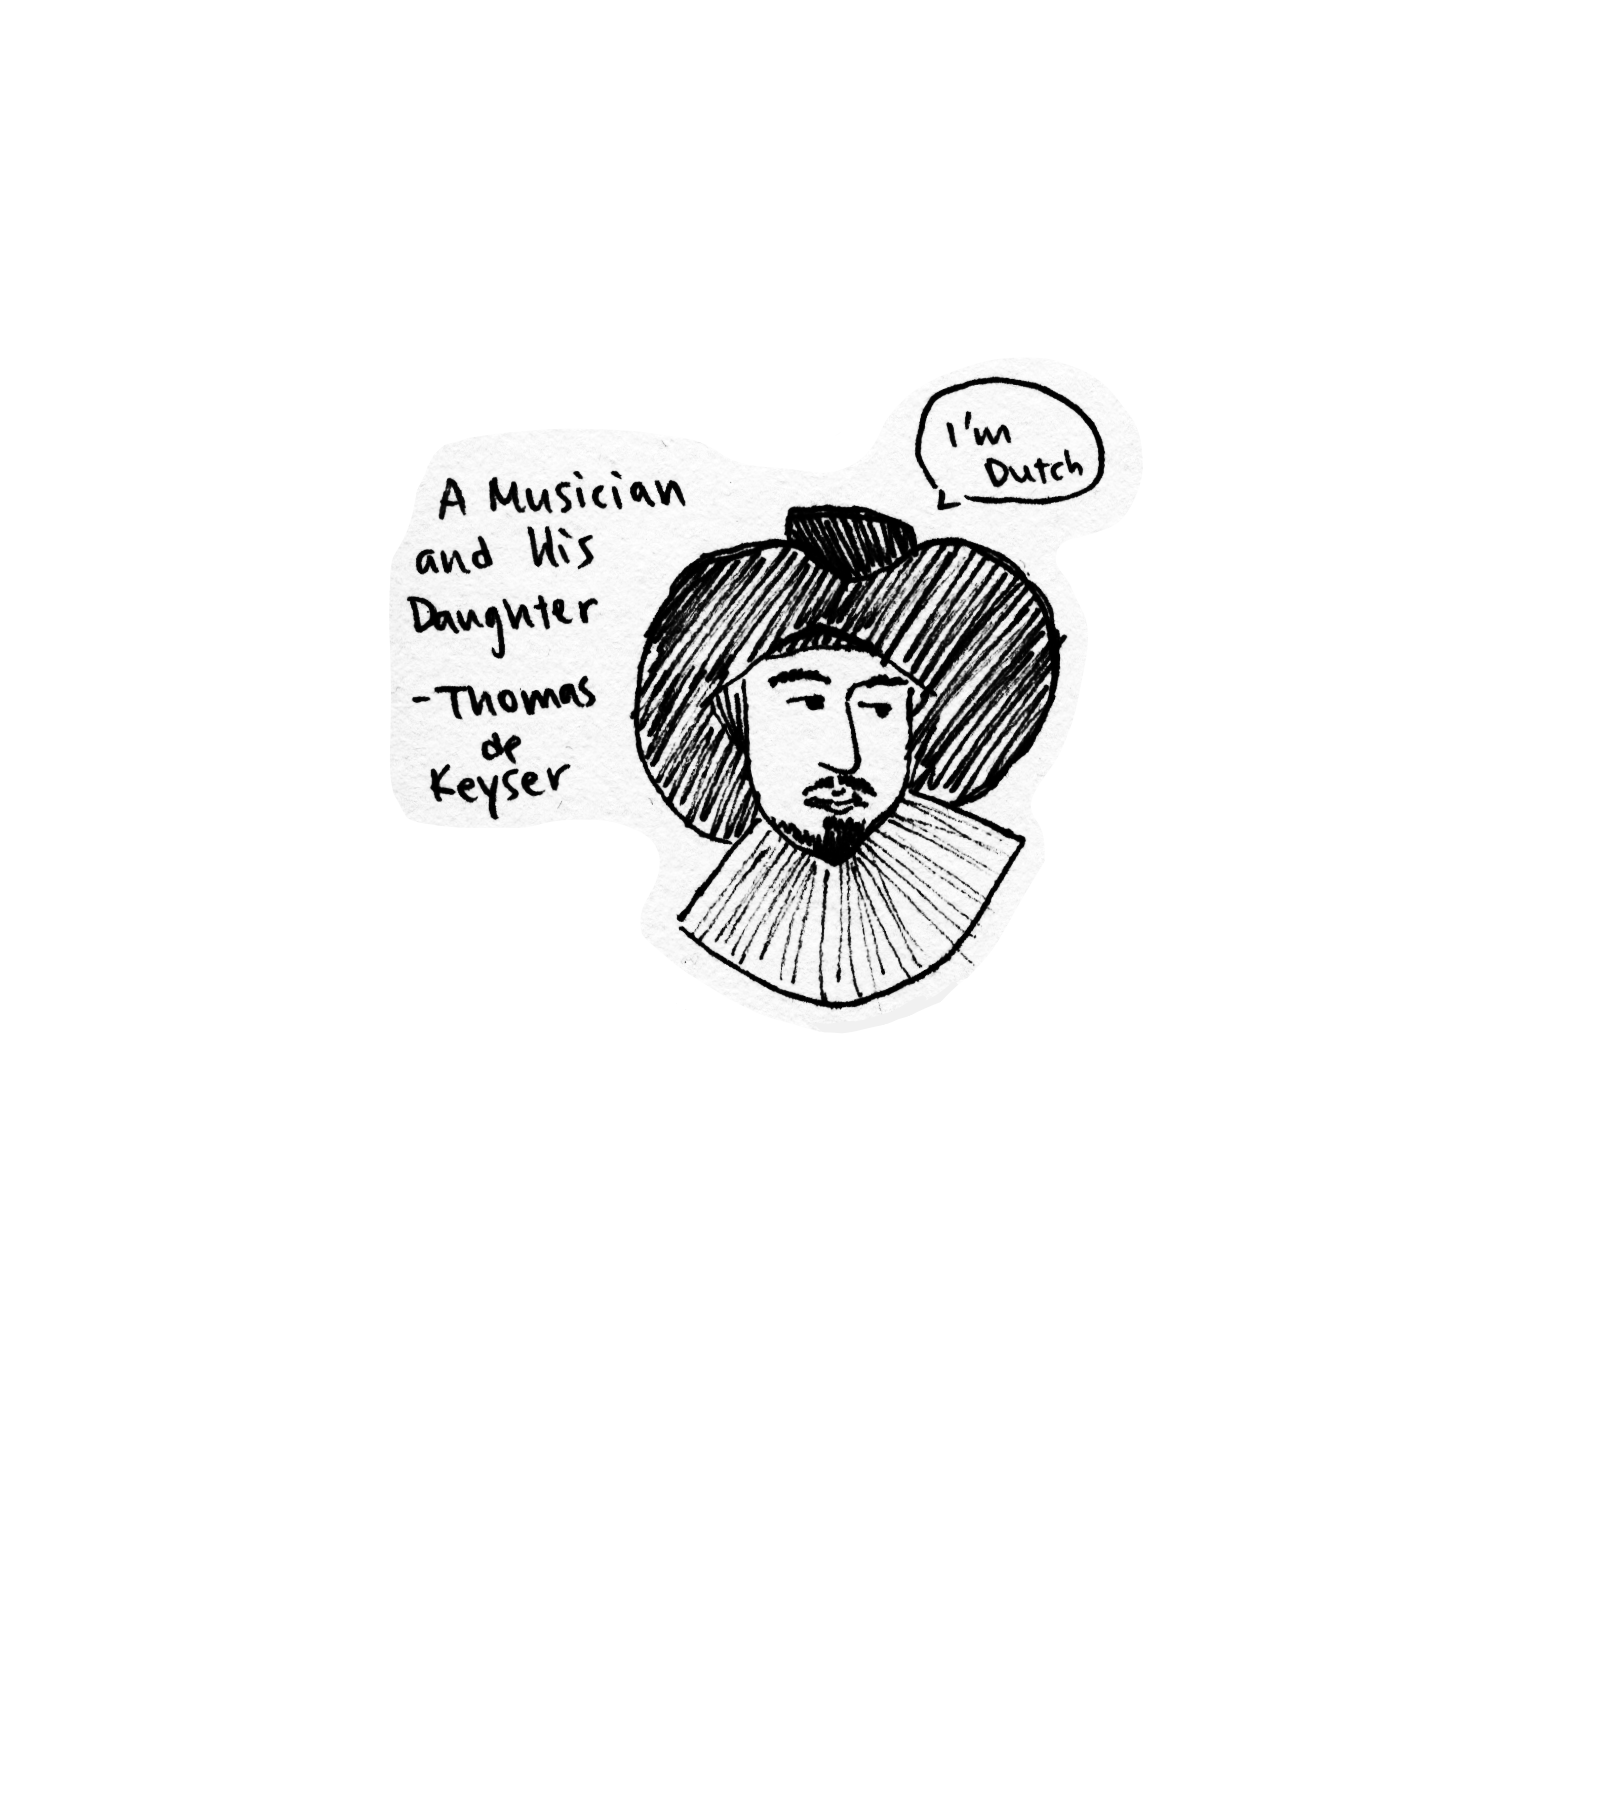 A Musician
and His
Daughter
- Thomas
de
Keyser
I'm
Dutch